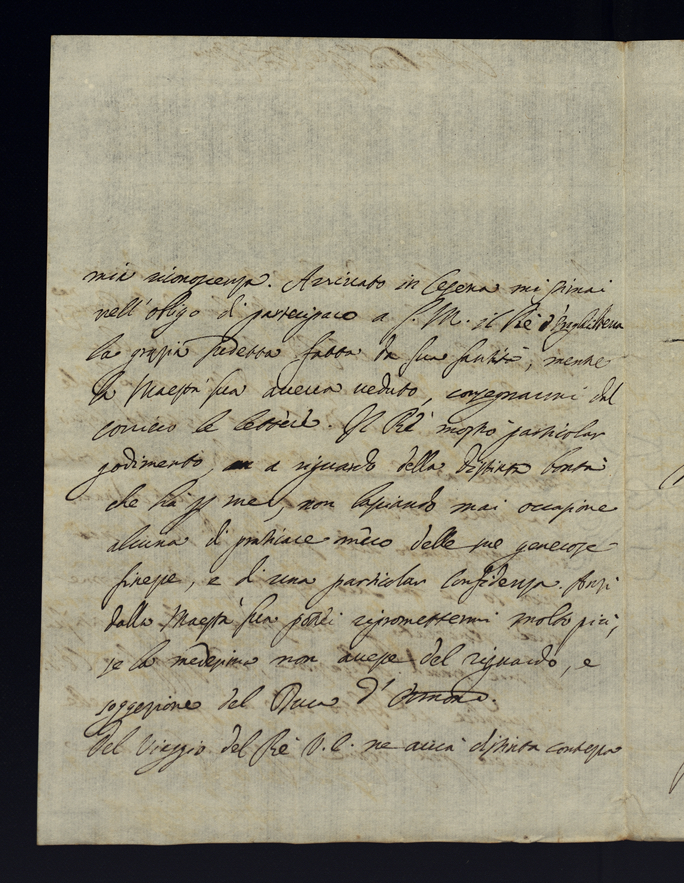 mia riconoscenza. Arrivato in Cesena mi stimai
nell'obligo di partecipare a S. M. il Rè d'Inghilterra
la grazia sudetta fatta da sua santità, mentre
la Maestà sua aveva veduto, consegnarmi dal
corriero le lettere. Il Rè mostrò particolar
godimento, a riguardo della distinta bontà
che hà per me, non lasciando mai occasione
alcuna di praticare meco delle sue generose
finezze, e d'una particolar confidenza. Anzi
dalla Maestà sua potrei ripromettermi molto più,
se la medesima non avesse del riguardo, e
soggezione del Duca d'Ormond.
Del Viaggio del Rè V. E. ne avrà distinta contezza